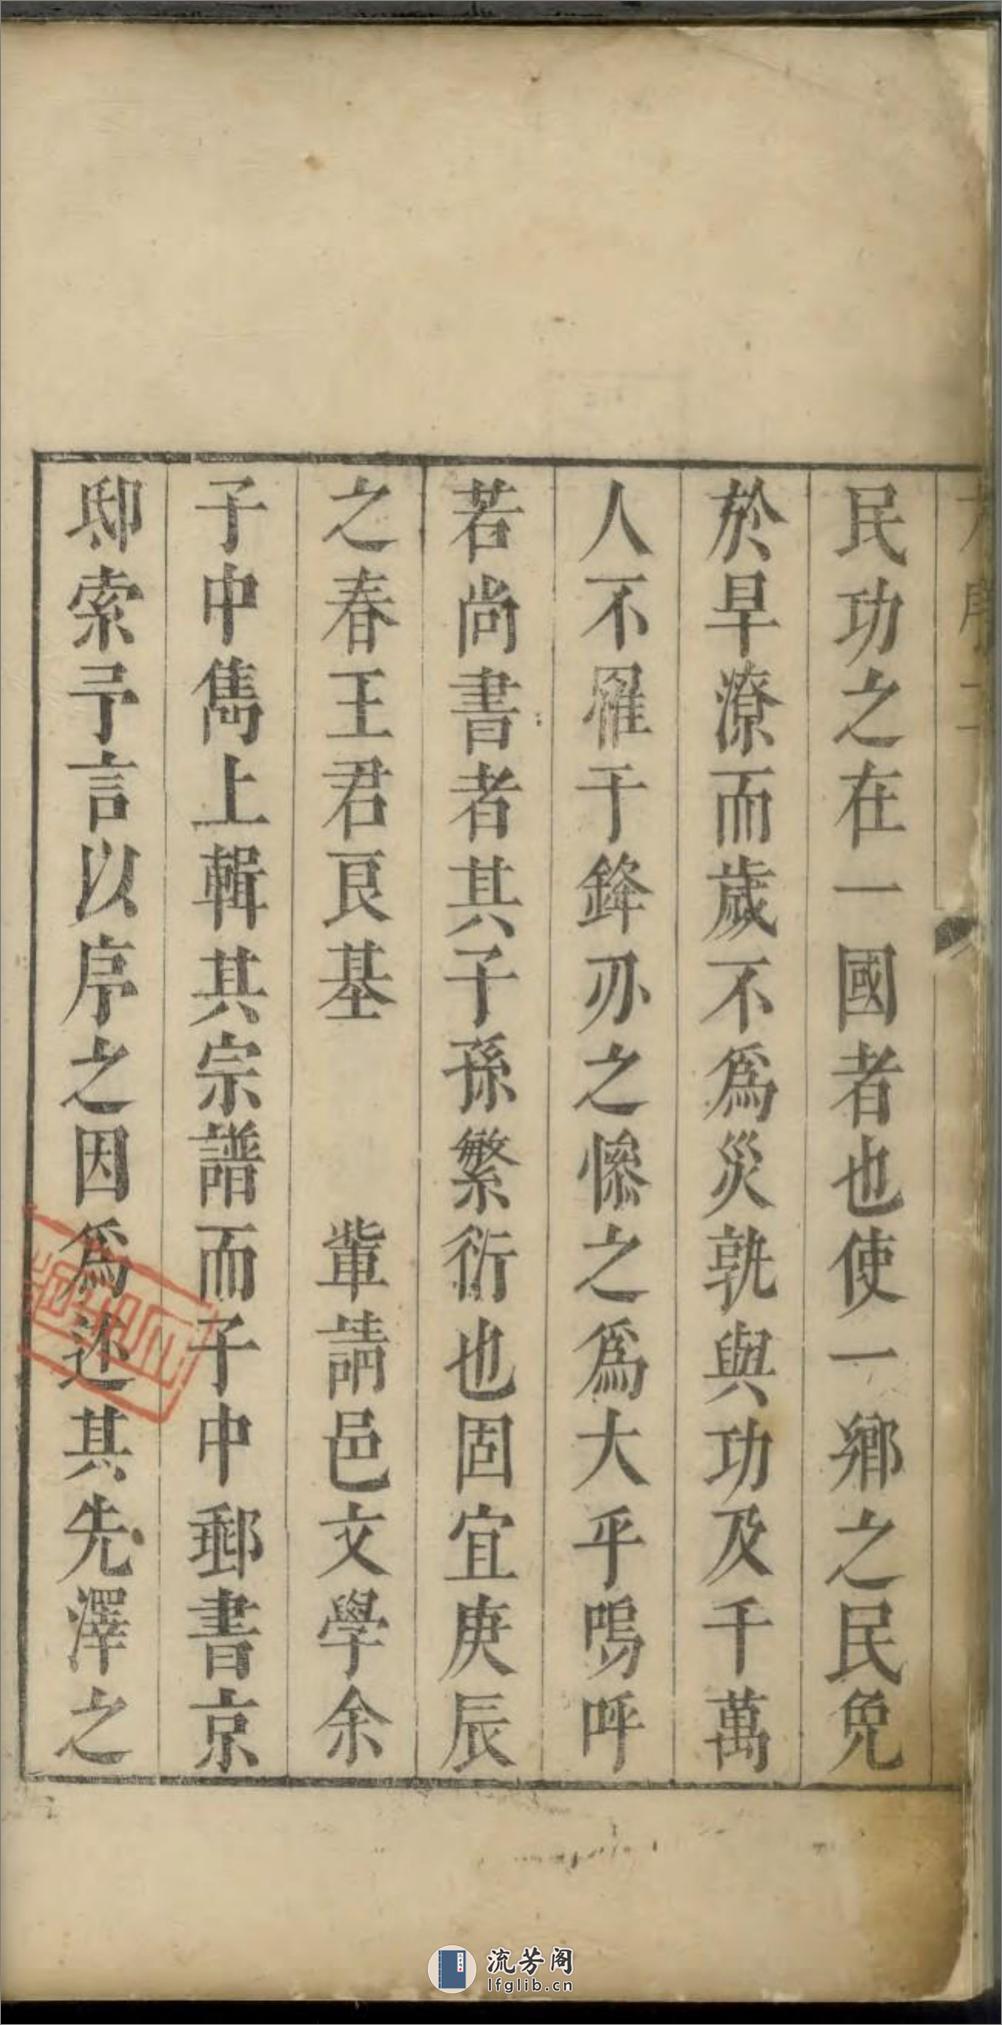 民功之在一國者也使一鄉之民免
於旱潦而歲不爲災孰與功及千萬
人不罹于鋒刃之慘之爲大乎嗚呼
若尚書者其子孫繁衍也固宜庚辰
之春王君艮基　　輩請邑文學余
子中雋上輯其宗譜而子中郵書京
邸索予言以序之因爲述其先澤之
流芳阁
lfglib.cn